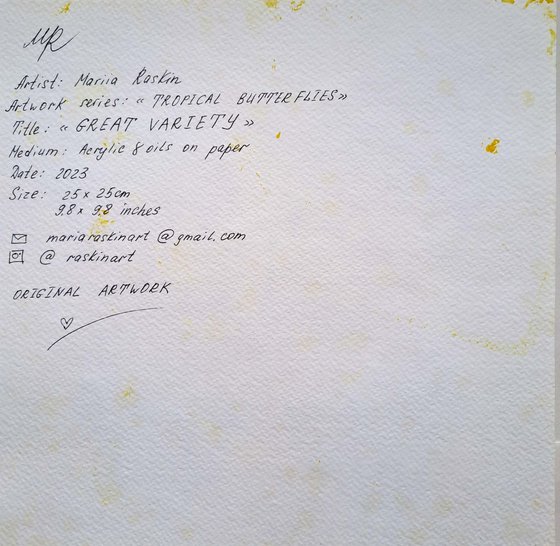 MR
Artist: Mariia Raskin
Artwork series: « TROPICAL BUTTERFLIES »
Title: « GREAT VARIETY »
Medium: Acrylic & oils on paper
Date: 2023
Size: 25 x 25cm
9.8 x 9.8 inches
mariaraskinart @gmail.com
@ raskinart
ORIGINAL ARTWORK